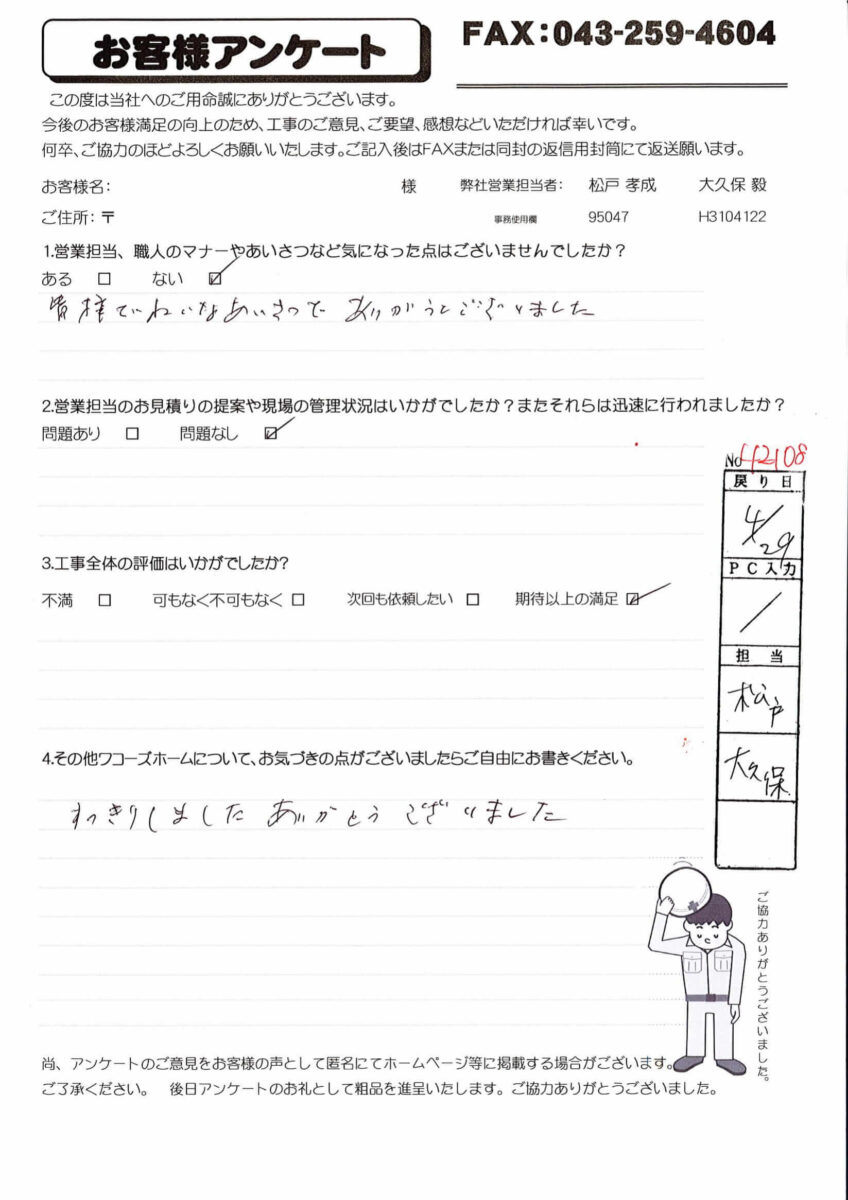 お客様アンケート
FAX:043-259-4604
この度は当社へのご用命誠にありがとうございます。
今後のお客様満足の向上のため、工事のご意見、ご要望、感想などいただければ幸いです。
何卒、ご協力のほどよろしくお願いいたします。ご記入後はFAXまたは同封の返信用封筒にて返送願います。
お客様名: 様 弊社営業担当者: 松戸 孝成 大久保 毅
ご住所:〒 事務使用欄 95047 H3104122
1.営業担当、職人のマナーやあいさつなど気になった点はございませんでしたか?
ある □ ない ☑
皆様ていねいなあいさつで ありがうとございました
2.営業担当のお見積りの提案や現場の管理状況はいかがでしたか?またそれらは迅速に行われましたか?
問題あり □ 問題なし ☑
No 42108
戻り日
4/29
PC入力
/
担当
松戸
大久保
3.工事全体の評価はいかがでしたか?
不満 □ 可もなく不可もなく □ 次回も依頼したい □ 期待以上の満足 ☑
4.その他ワコーズホームについて、お気づきの点がございましたらご自由にお書きください。
すっきりしました ありがとう ございました
ご協力ありがとうございました。
尚、アンケートのご意見をお客様の声として匿名にてホームページ等に掲載する場合がございます。
ご了承ください。 後日アンケートのお礼として粗品を進呈いたします。ご協力ありがとうございました。